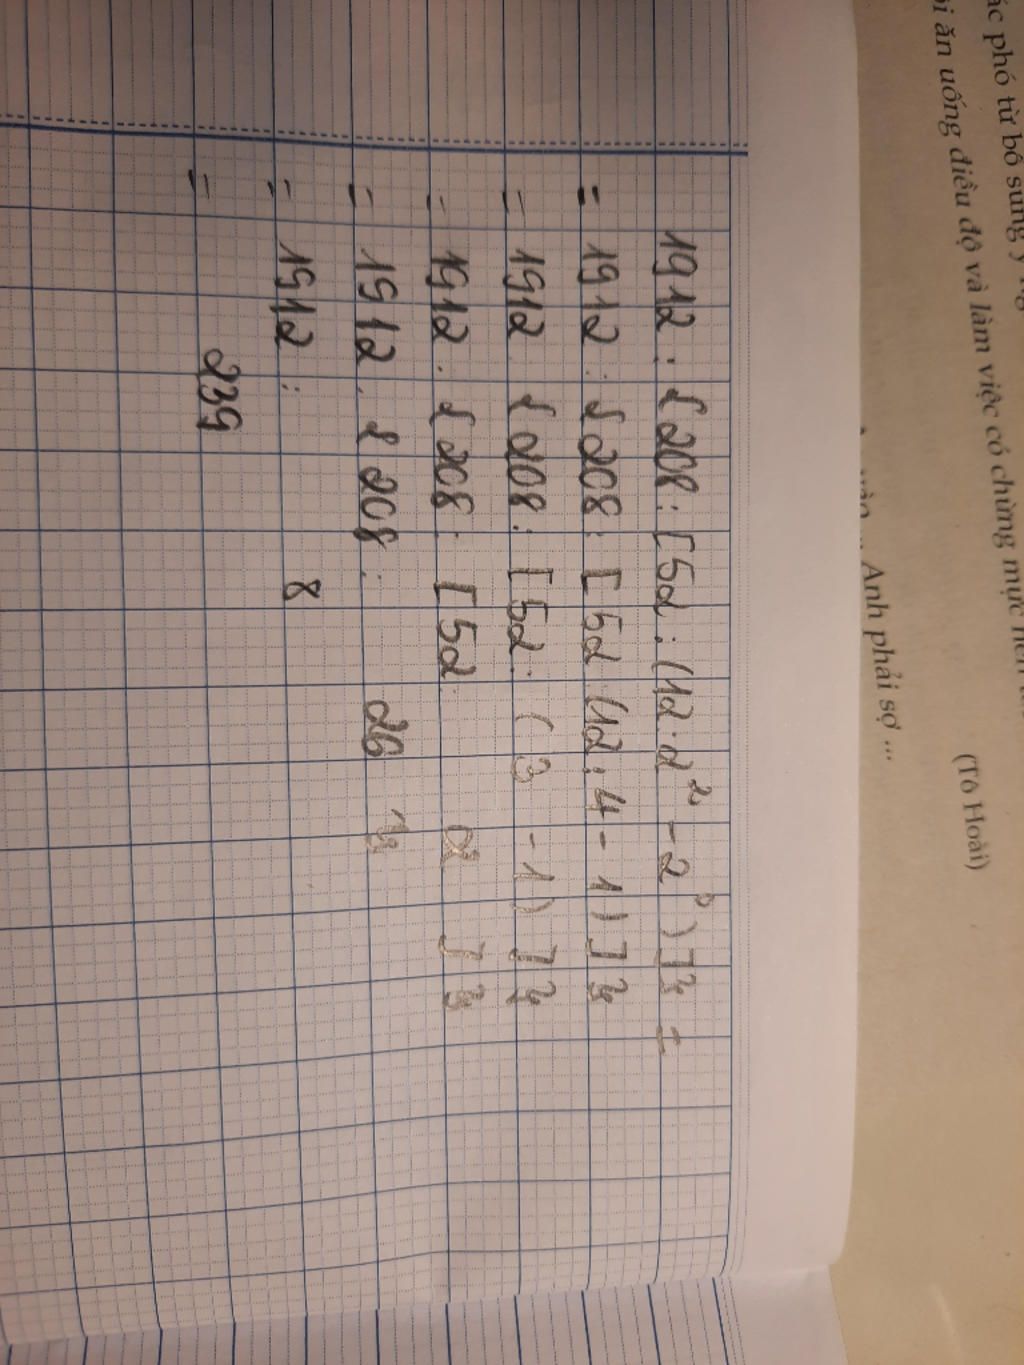 ác phó từ bổ sung ý
ăn uống điều độ và làm việc có chừng mực nên
(Tô Hoài)
Anh phải sợ ...
1912 : { 208 : [ 52 : ( 12 : 2² - 2⁰ ) ] } =
= 1912 : { 208 : [ 52 : ( 12 : 4 - 1 ) ] }
= 1912 : { 208 : [ 52 : ( 3 - 1 ) ] }
= 1912 : { 208 : [ 52 : 2 ] }
= 1912 : { 208 : 26 }
= 1912 : 8
= 239